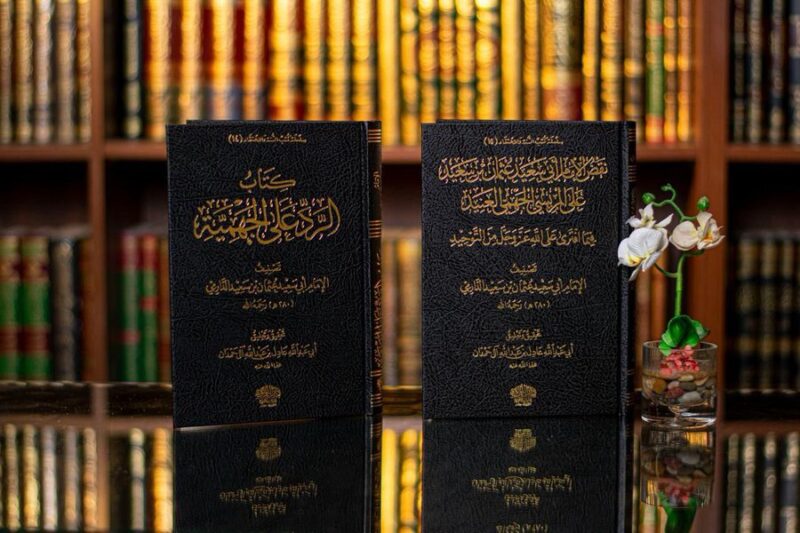 سلسلة كتب السنة والاعتقاد (١٤)
كتاب
الرد على الجهمية
تصنيف
الإمام أبي سعيد عثمان بن سعيد الدارمي
(٢٨٠هـ) رحمه الله
تحقيق وتعليق
أبي عبد الله عادل بن عبد الله آل حمدان
سلسلة كتب السنة والاعتقاد (١٥)
نقض الإمام أبي سعيد عثمان بن سعيد
على المريسي الجهمي العنيد
فيما افترى على الله عز وجل من التوحيد
تصنيف
الإمام أبي سعيد عثمان بن سعيد الدارمي
(٢٨٠هـ) رحمه الله
تحقيق وتعليق
أبي عبد الله عادل بن عبد الله آل حمدان